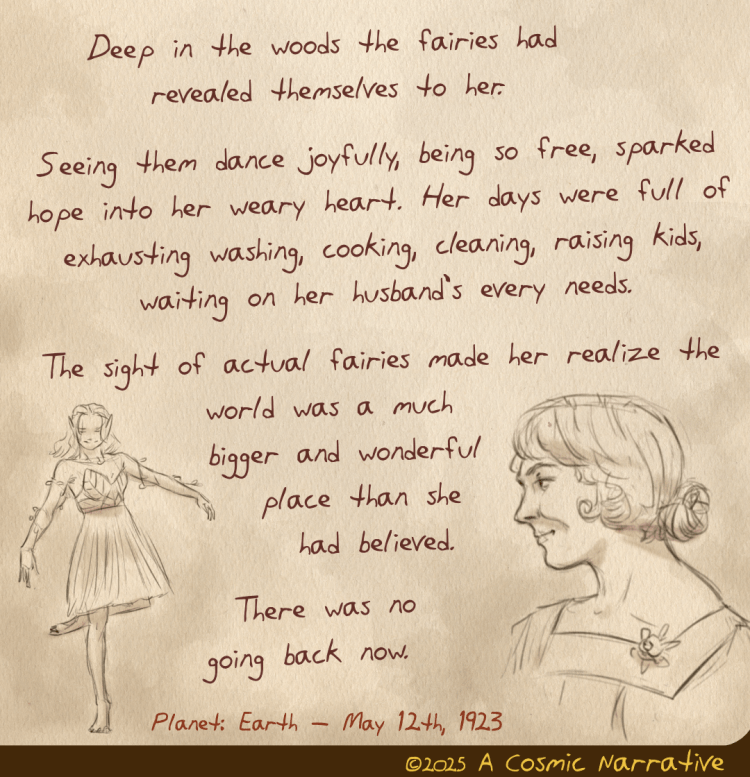 Deep in the woods the fairies had
revealed themselves to her.
Seeing them dance joyfully, being so free, sparked
hope into her weary heart. Her days were full of
exhausting washing, cooking, cleaning, raising kids,
waiting on her husband's every needs.
The sight of actual fairies made her realize the
world was a much
bigger and wonderful
place than she
had believed.
There was no
going back now.
Planet: Earth – May 12th, 1923
©2025 A Cosmic Narrative